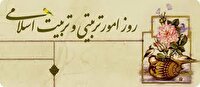 روز امور تربیتی و تربیت اسلامی